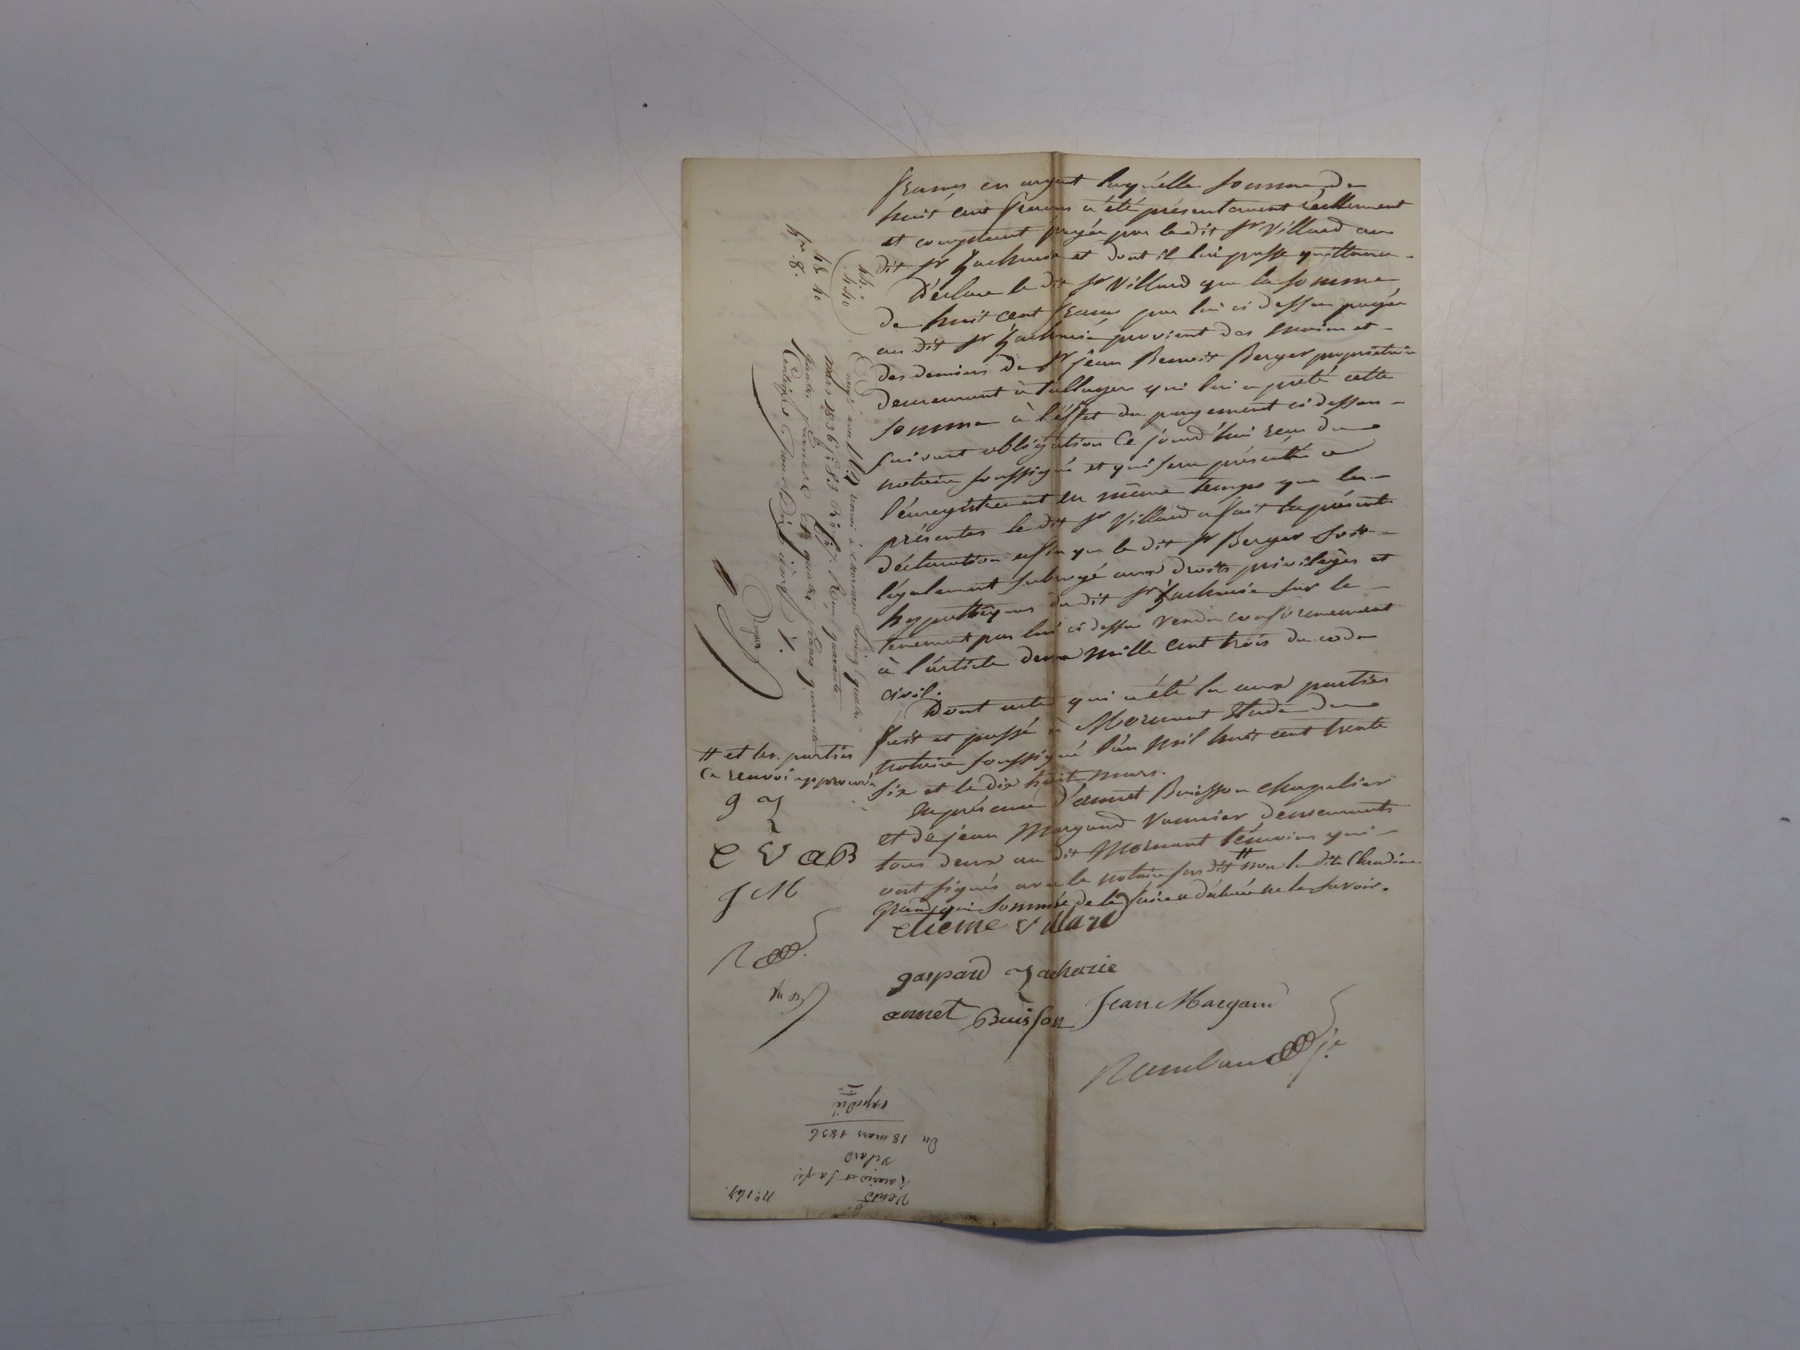 francs en argent laquelle somme de
huit cent francs a été présentement réellement
et comptant payée par le dit Sr Villard au
dit Sr Zacharie et dont il lui passe quittance.
Déclare le dit Sr Villard que la somme
de huit cent francs par lui ci dessus payée
au dit Sr Zacharie provient des mains et
des deniers de Sr jean Benoit Berger propriétaire
demeurant à taluyers qui lui a preté cette
somme à l'effet du payement ci dessus
suivant obligation ce jourd'hui recu du
notaire soussigné et qui sera présentée a
l'enregistrement en même temps que les
présentes le dit Sr Villard a fait la présente
déclaration affin que le dit Sr Berger soit
légalement subrogé aux droits privilèges et
hypothèques du dit Sr Zacharie sur le
tenement par lui ci dessus vendu conformement
à l'article deux mille cent trois du code
civil.
Dont acte qui a été lu aux parties
fait et passé à Mornant Etude du
notaire soussigné l'an mil huit cent trente
six et le dix huit mars.
En présence d'annet Buisson chapelier
et de jean Margand vannier demeurants
tous deux au dit Mornant témoins qui
ont signés avec le notaire susdit # non la dite Claudine
Grand qui sommée de le faire a déclaré ne le savoir.
# et les parties
Ce renvoi approuvé
g Z
e V a B
J M
etieme Villard
gaspard Zacharie
annet Buisson Jean Margand
Rambaud je
44. "
4. 40
48. 40
8.
mars 1836 f: 83
quarante
quatre francs quarante
No. 147.
Vente
Zacharie à
Vilard
Du 18 mars 1836
expédié